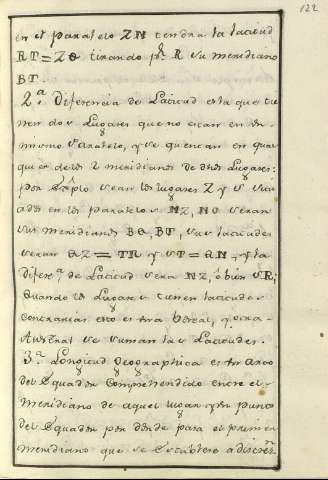 122
en el paralelo ZN tendra la laticud
RT=ZQ tirando pr. R su meridiano
BT.
2a. Diferencia de Laticud es la que tie
nen dos Lugares que no estan en un
mismo Paralelo, y se quentan en qual
quiera de los 2 meridianos de dhos Lugares:
por Exmplo sean los lugares Z y S situ
ados en los paralelos NZ, MO seran
sus meridianos BQ, BT, sus latitudes
seran QZ=TR y ST=QM, y la
difera. de Laticud sera MZ, ò bien SR,
quando los Lugares tienen latitudes
contrarias esto es una Boreal, y otra
Austral se suman las Latitudes.
3a. Longicud Geographica es un arco
del Equador Comprehendido entre el
meridiano de aquel lugar y un punto
del Equador por donde pasa el primer
meridiano que se establece a discren.